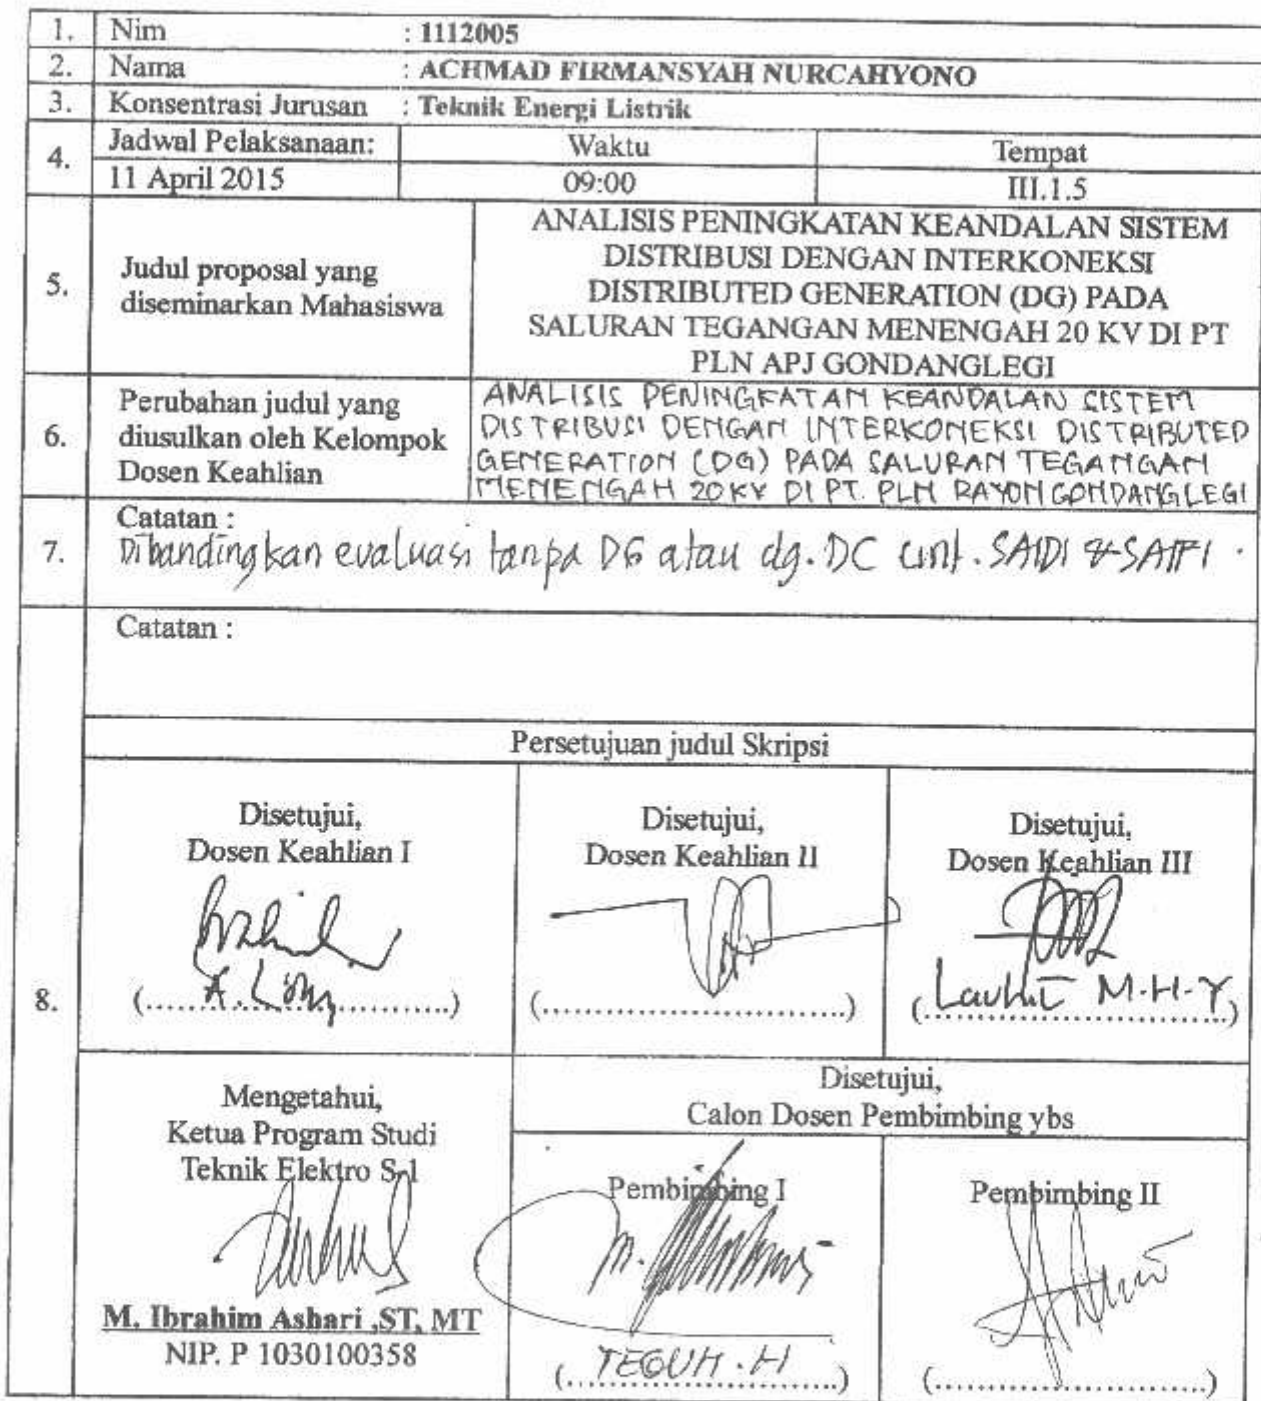 1. Nim : 1112005
2. Nama : ACHMAD FIRMANSYAH NURCAHYONO
3. Konsentrasi Jurusan : Teknik Energi Listrik
4. Jadwal Pelaksanaan: Waktu Tempat
11 April 2015 09:00 III.1.5
5. Judul proposal yang
diseminarkan Mahasiswa
ANALISIS PENINGKATAN KEANDALAN SISTEM
DISTRIBUSI DENGAN INTERKONEKSI
DISTRIBUTED GENERATION (DG) PADA
SALURAN TEGANGAN MENENGAH 20 KV DI PT
PLN APJ GONDANGLEGI
6. Perubahan judul yang
diusulkan oleh Kelompok
Dosen Keahlian
ANALISIS PENINGKATAN KEANDALAN SISTEM
DISTRIBUSI DENGAN INTERKONEKSI DISTRIBUTED
GENERATION (DG) PADA SALURAN TEGANGAN
MENENGAH 20 KV DI PT. PLN RAYON GONDANGLEGI
7. Catatan :
Dibandingkan evaluasi tanpa DG atau dg. DC . SAIDI & SAIFI .
8. Catatan :
Persetujuan judul Skripsi
Disetujui,
Dosen Keahlian I
(....................)
Disetujui,
Dosen Keahlian II
(....................)
Disetujui,
Dosen Keahlian III
(M.H.Y)
Mengetahui,
Ketua Program Studi
Teknik Elektro S-1
M. Ibrahim Ashari ,ST, MT
NIP. P 1030100358
Disetujui,
Calon Dosen Pembimbing ybs
Pembimbing I
(TEGUH . H)
Pembimbing II
(....................)